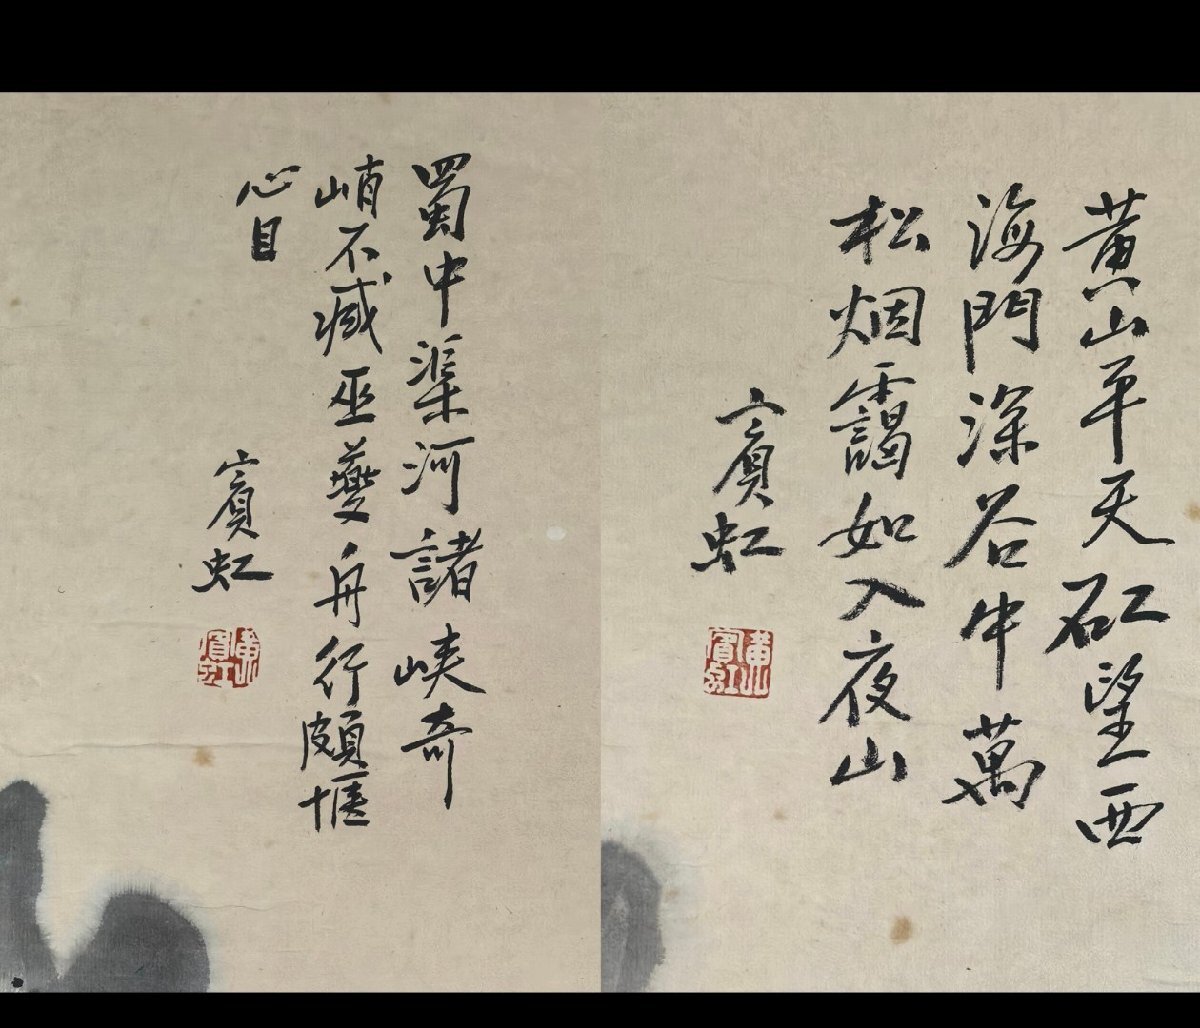 黄山平天矼望西
海門深谷中萬
松烟靄如入夜山
賓虹
黄賓虹
蜀中渠河諸峽奇
峭不減巫夔舟行頗愜
心目
賓虹
黄賓虹